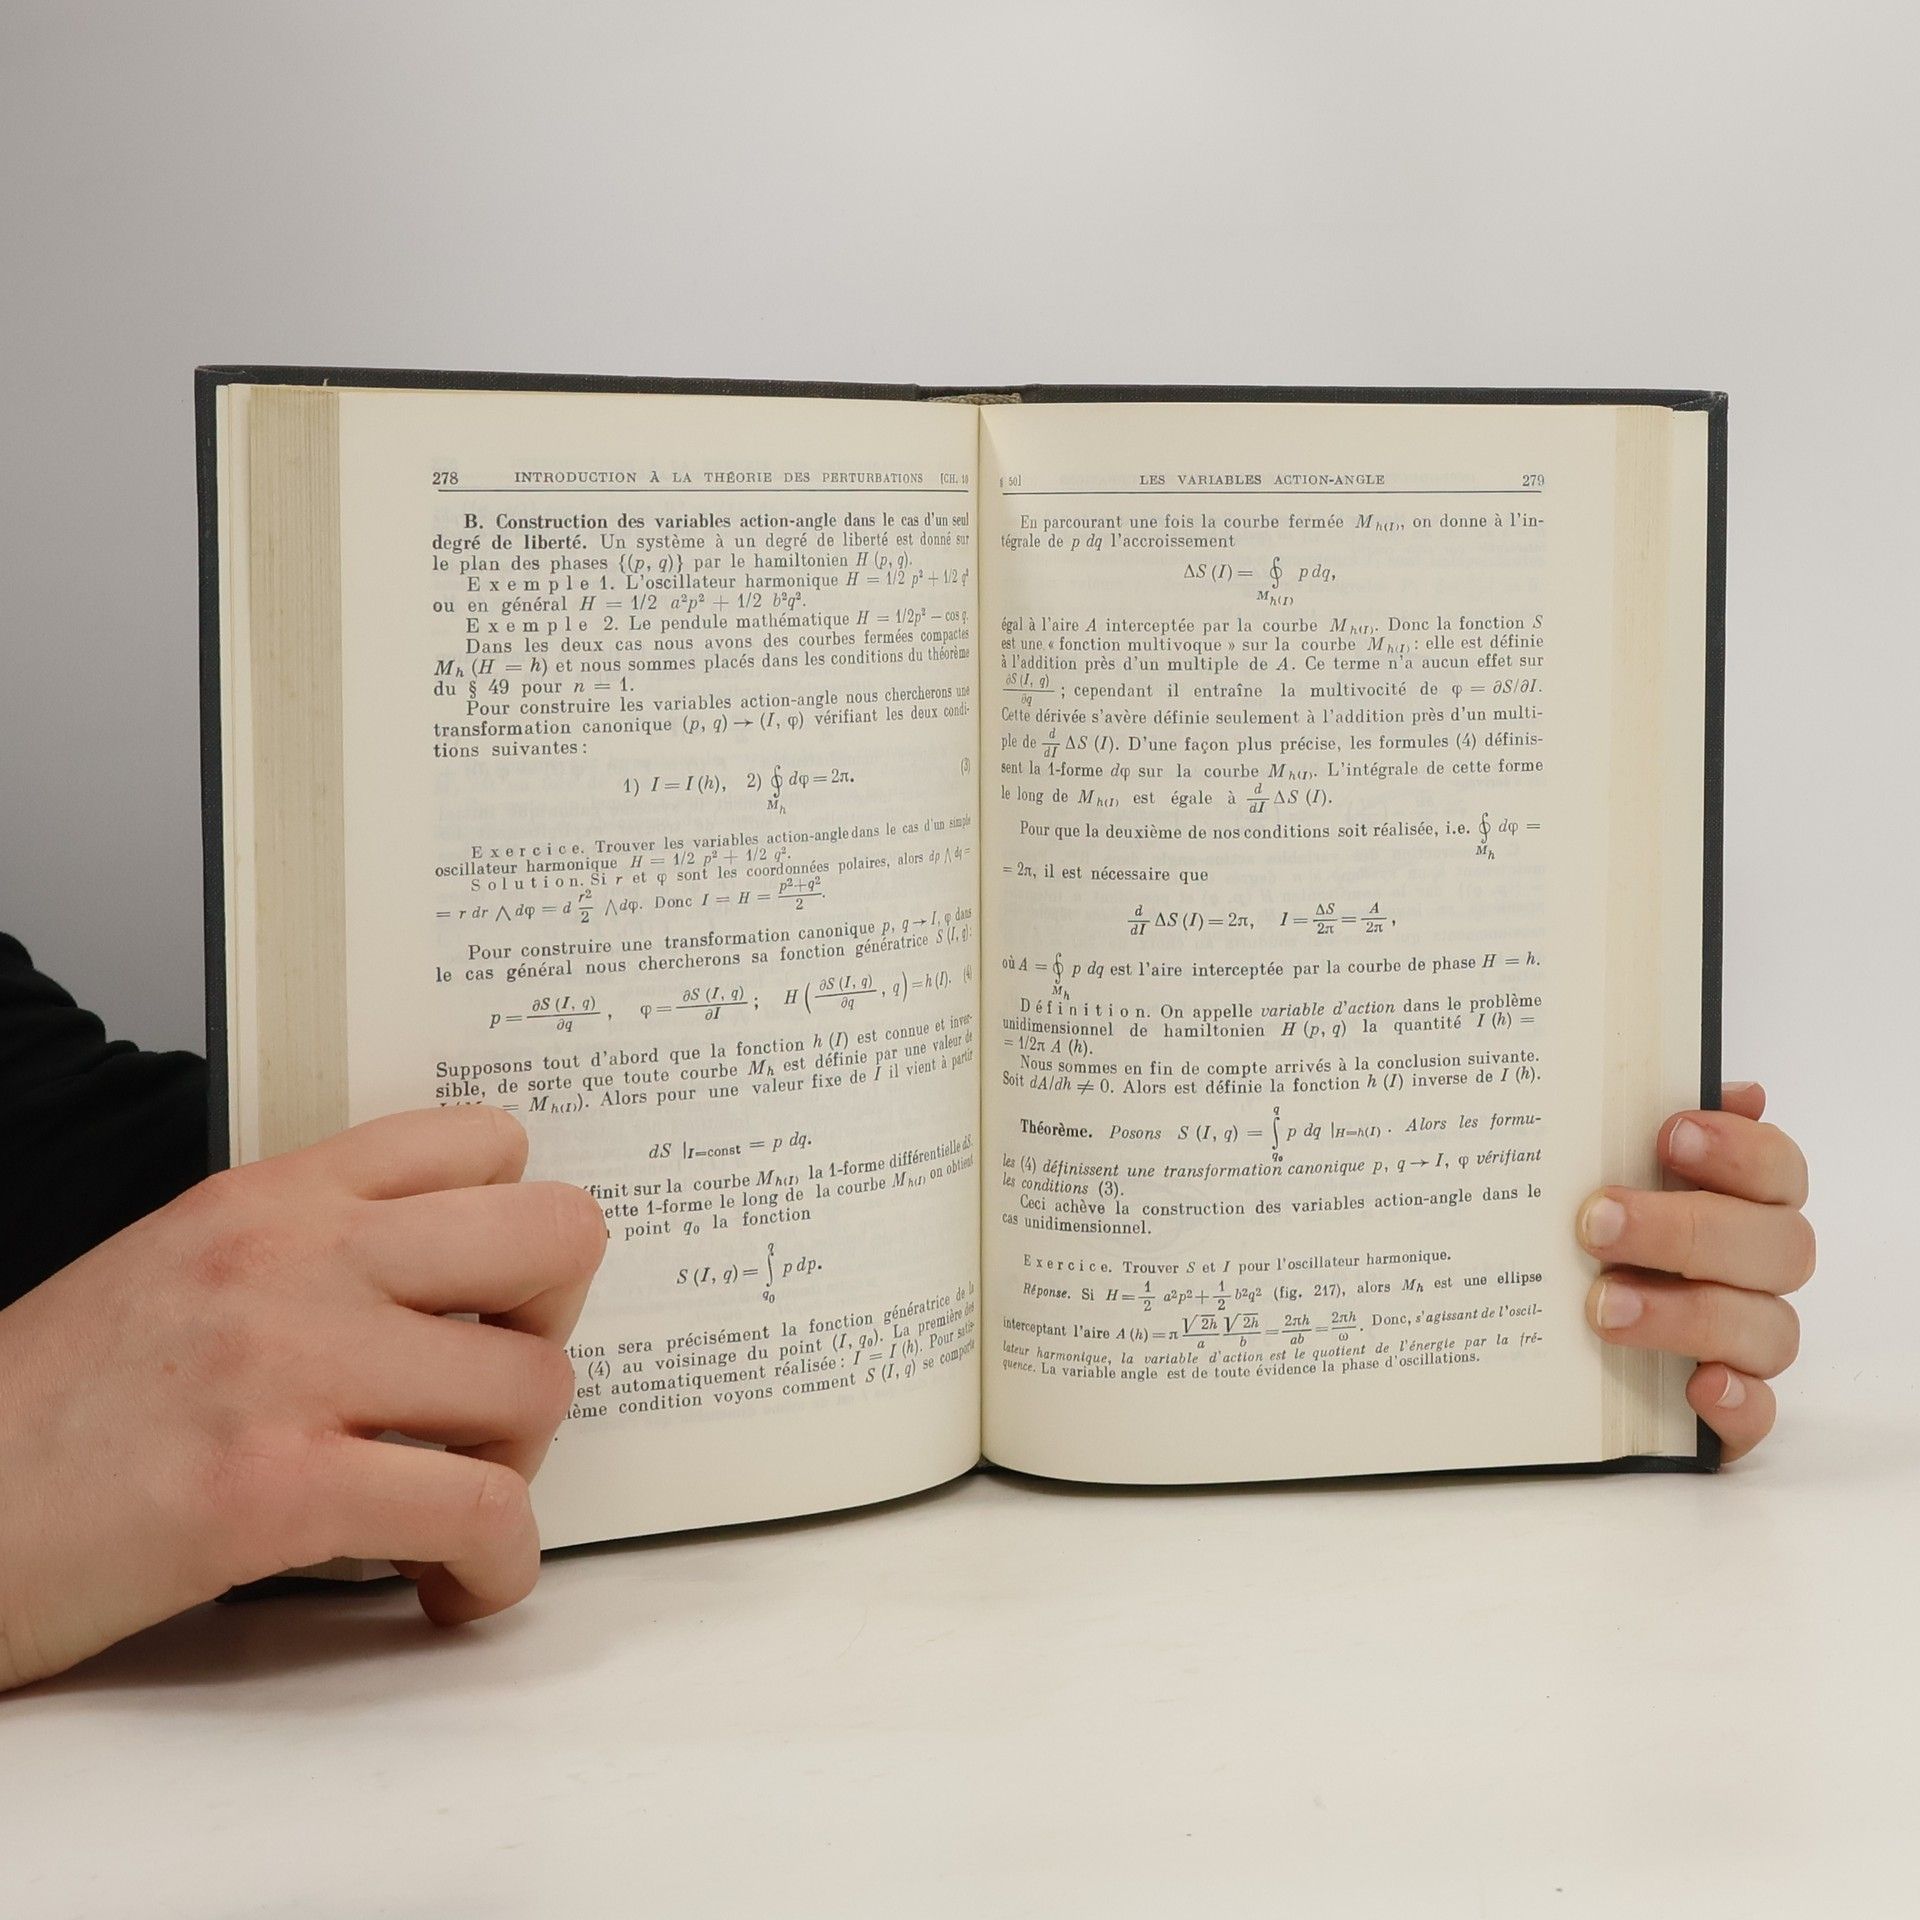 278 INTRODUCTION À LA THÉORIE DES PERTURBATIONS [CH. 10
B. Construction des variables action-angle dans le cas d'un seul
degré de liberté. Un système à un degré de liberté est donné sur
le plan des phases {(p, q)} par le hamiltonien H (p, q).
Exemple 1. L'oscillateur harmonique H = 1/2 p² + 1/2 q²
ou en général H = 1/2 a²p² + 1/2 b²q².
Exemple 2. Le pendule mathématique H = 1/2p² — cos q.
Dans les deux cas nous avons des courbes fermées compactes
M_h (H = h) et nous sommes placés dans les conditions du théorème
du § 49 pour n = 1.
Pour construire les variables action-angle nous chercherons une
transformation canonique (p, q) → (I, φ) vérifiant les deux condi-
tions suivantes:
1) I = I (h), 2) ∮_{M_h} dφ = 2π. (3)
Exercice. Trouver les variables action-angle dans le cas d'un simple
oscillateur harmonique H = 1/2 p² + 1/2 q².
Solution. Si r et φ sont les coordonnées polaires, alors dp ∧ dq =
= r dr ∧ dφ = d r²/2 ∧ dφ. Donc I = H = (p²+q²)/2.
Pour construire une transformation canonique p, q → I, φ dans
le cas général nous chercherons sa fonction génératrice S (I, q):
p = ∂S (I, q)/∂q, φ = ∂S (I, q)/∂I; H (∂S (I, q)/∂q, q) = h (I). (4)
Supposons tout d'abord que la fonction h (I) est connue et inver-
sible, de sorte que toute courbe M_h est définie par une valeur de
= M_{h(I)}). Alors pour une valeur fixe de I il vient à partir
dS |_{I=const} = p dq.
finit sur la courbe M_{h(I)} la 1-forme différentielle dS.
ette 1-forme le long de la courbe M_{h(I)} on obtient
point q₀ la fonction
S (I, q) = ∫_{q₀}^{q} p dp.
tion sera précisément la fonction génératrice de la
(4) au voisinage du point (I, q₀). La première des
est automatiquement réalisée: I = I (h). Pour satis-
ème condition voyons comment S (I, q) se comporte
§ 50] LES VARIABLES ACTION-ANGLE 279
En parcourant une fois la courbe fermée M_{h(I)}, on donne à l'in-
tégrale de p dq l'accroissement
ΔS (I) = ∮_{M_{h(I)}} p dq,
égal à l'aire A interceptée par la courbe M_{h(I)}. Donc la fonction S
est une « fonction multivoque » sur la courbe M_{h(I)}: elle est définie
à l'addition près d'un multiple de A. Ce terme n'a aucun effet sur
∂S (I, q)/∂q; cependant il entraîne la multivocité de φ = ∂S/∂I.
Cette dérivée s'avère définie seulement à l'addition près d'un multi-
ple de d/dI ΔS (I). D'une façon plus précise, les formules (4) définis-
sent la 1-forme dφ sur la courbe M_{h(I)}. L'intégrale de cette forme
le long de M_{h(I)} est égale à d/dI ΔS (I).
Pour que la deuxième de nos conditions soit réalisée, i.e. ∮_{M_h} dφ =
= 2π, il est nécessaire que
d/dI ΔS (I) = 2π, I = ΔS/2π = A/2π,
où A = ∮_{M_h} p dq est l'aire interceptée par la courbe de phase H = h.
Définition. On appelle variable d'action dans le problème
unidimensionnel de hamiltonien H (p, q) la quantité I (h) =
= 1/2π A (h).
Nous sommes en fin de compte arrivés à la conclusion suivante.
Soit dA/dh ≠ 0. Alors est définie la fonction h (I) inverse de I (h).
Théorème. Posons S (I, q) = ∫_{q₀}^{q} p dq |_{H=h(I)}. Alors les formu-
les (4) définissent une transformation canonique p, q → I, φ vérifiant
les conditions (3).
Ceci achève la construction des variables action-angle dans le
cas unidimensionnel.
Exercice. Trouver S et I pour l'oscillateur harmonique.
Réponse. Si H = 1/2 a²p² + 1/2 b²q² (fig. 217), alors M_h est une ellipse
interceptant l'aire A (h) = π √2h/a √2h/b = 2πh/ab = 2πh/ω. Donc, s'agissant de l'oscil-
lateur harmonique, la variable d'action est le quotient de l'énergie par la fré-
quence. La variable angle est de toute évidence la phase d'oscillations.